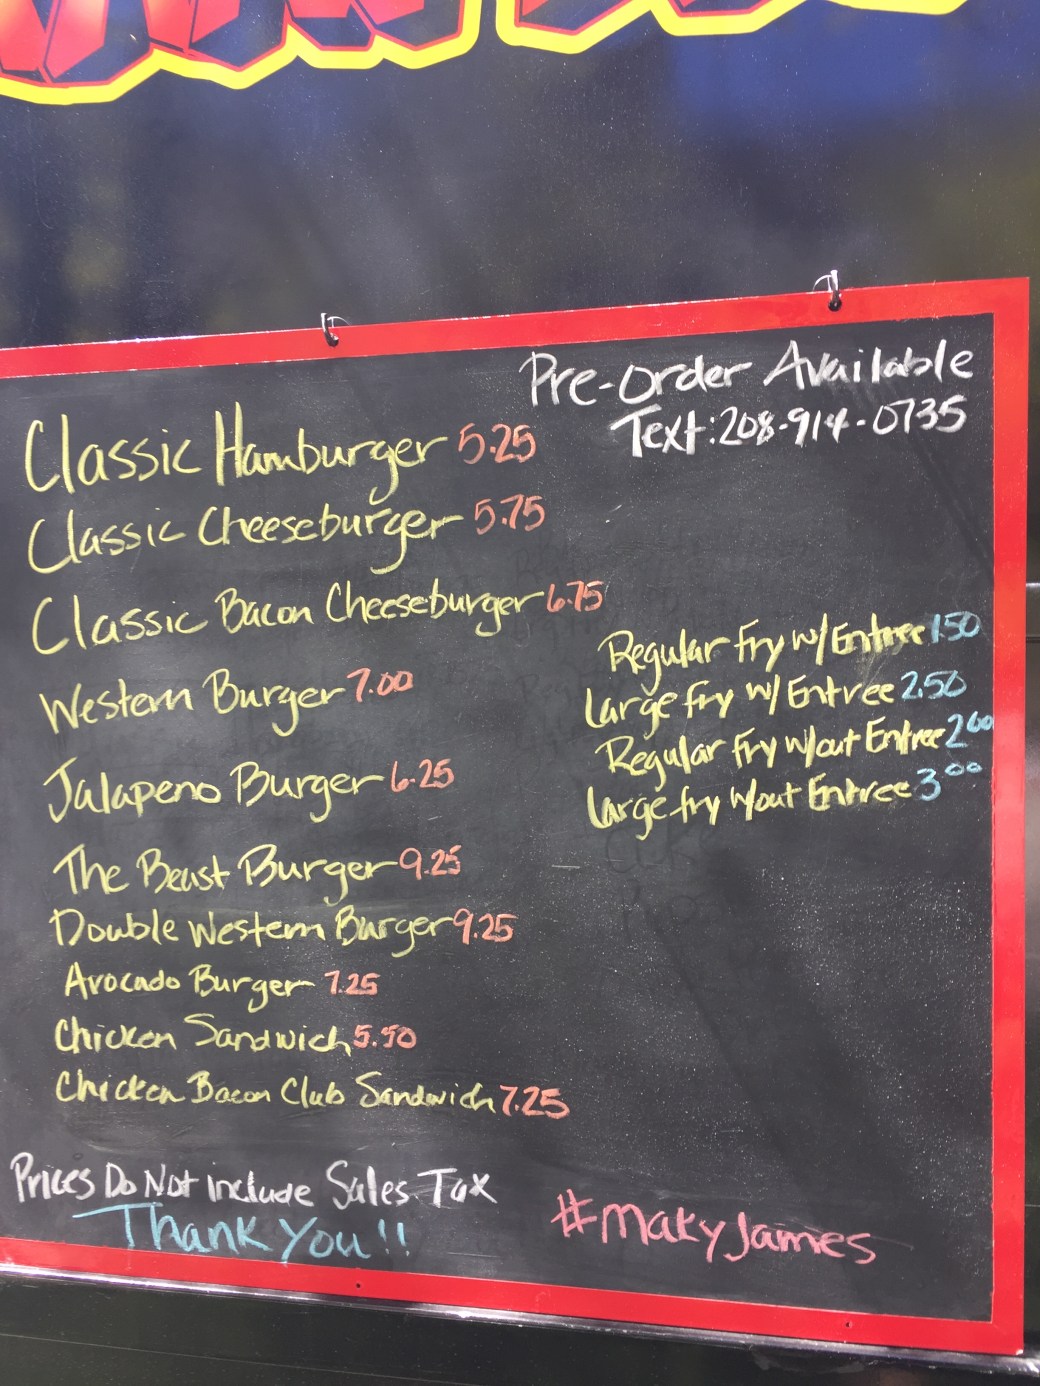 Pre-Order Available
Text: 208-914-0735
Classic Hamburger 5.25
Classic Cheeseburger 5.75
Classic Bacon Cheeseburger 6.75
Western Burger 7.00
Jalapeno Burger 6.25
The Beast Burger 9.25
Double Western Burger 9.25
Avocado Burger 7.25
Chicken Sandwich 5.50
Chicken Bacon Club Sandwich 7.25
Regular Fry w/ Entree 1.50
Large fry w/ Entree 2.50
Regular Fry w/out Entree 2.00
Large fry w/out Entree 3.00
Prices Do Not include Sales Tax
Thank You!!
#makyJames